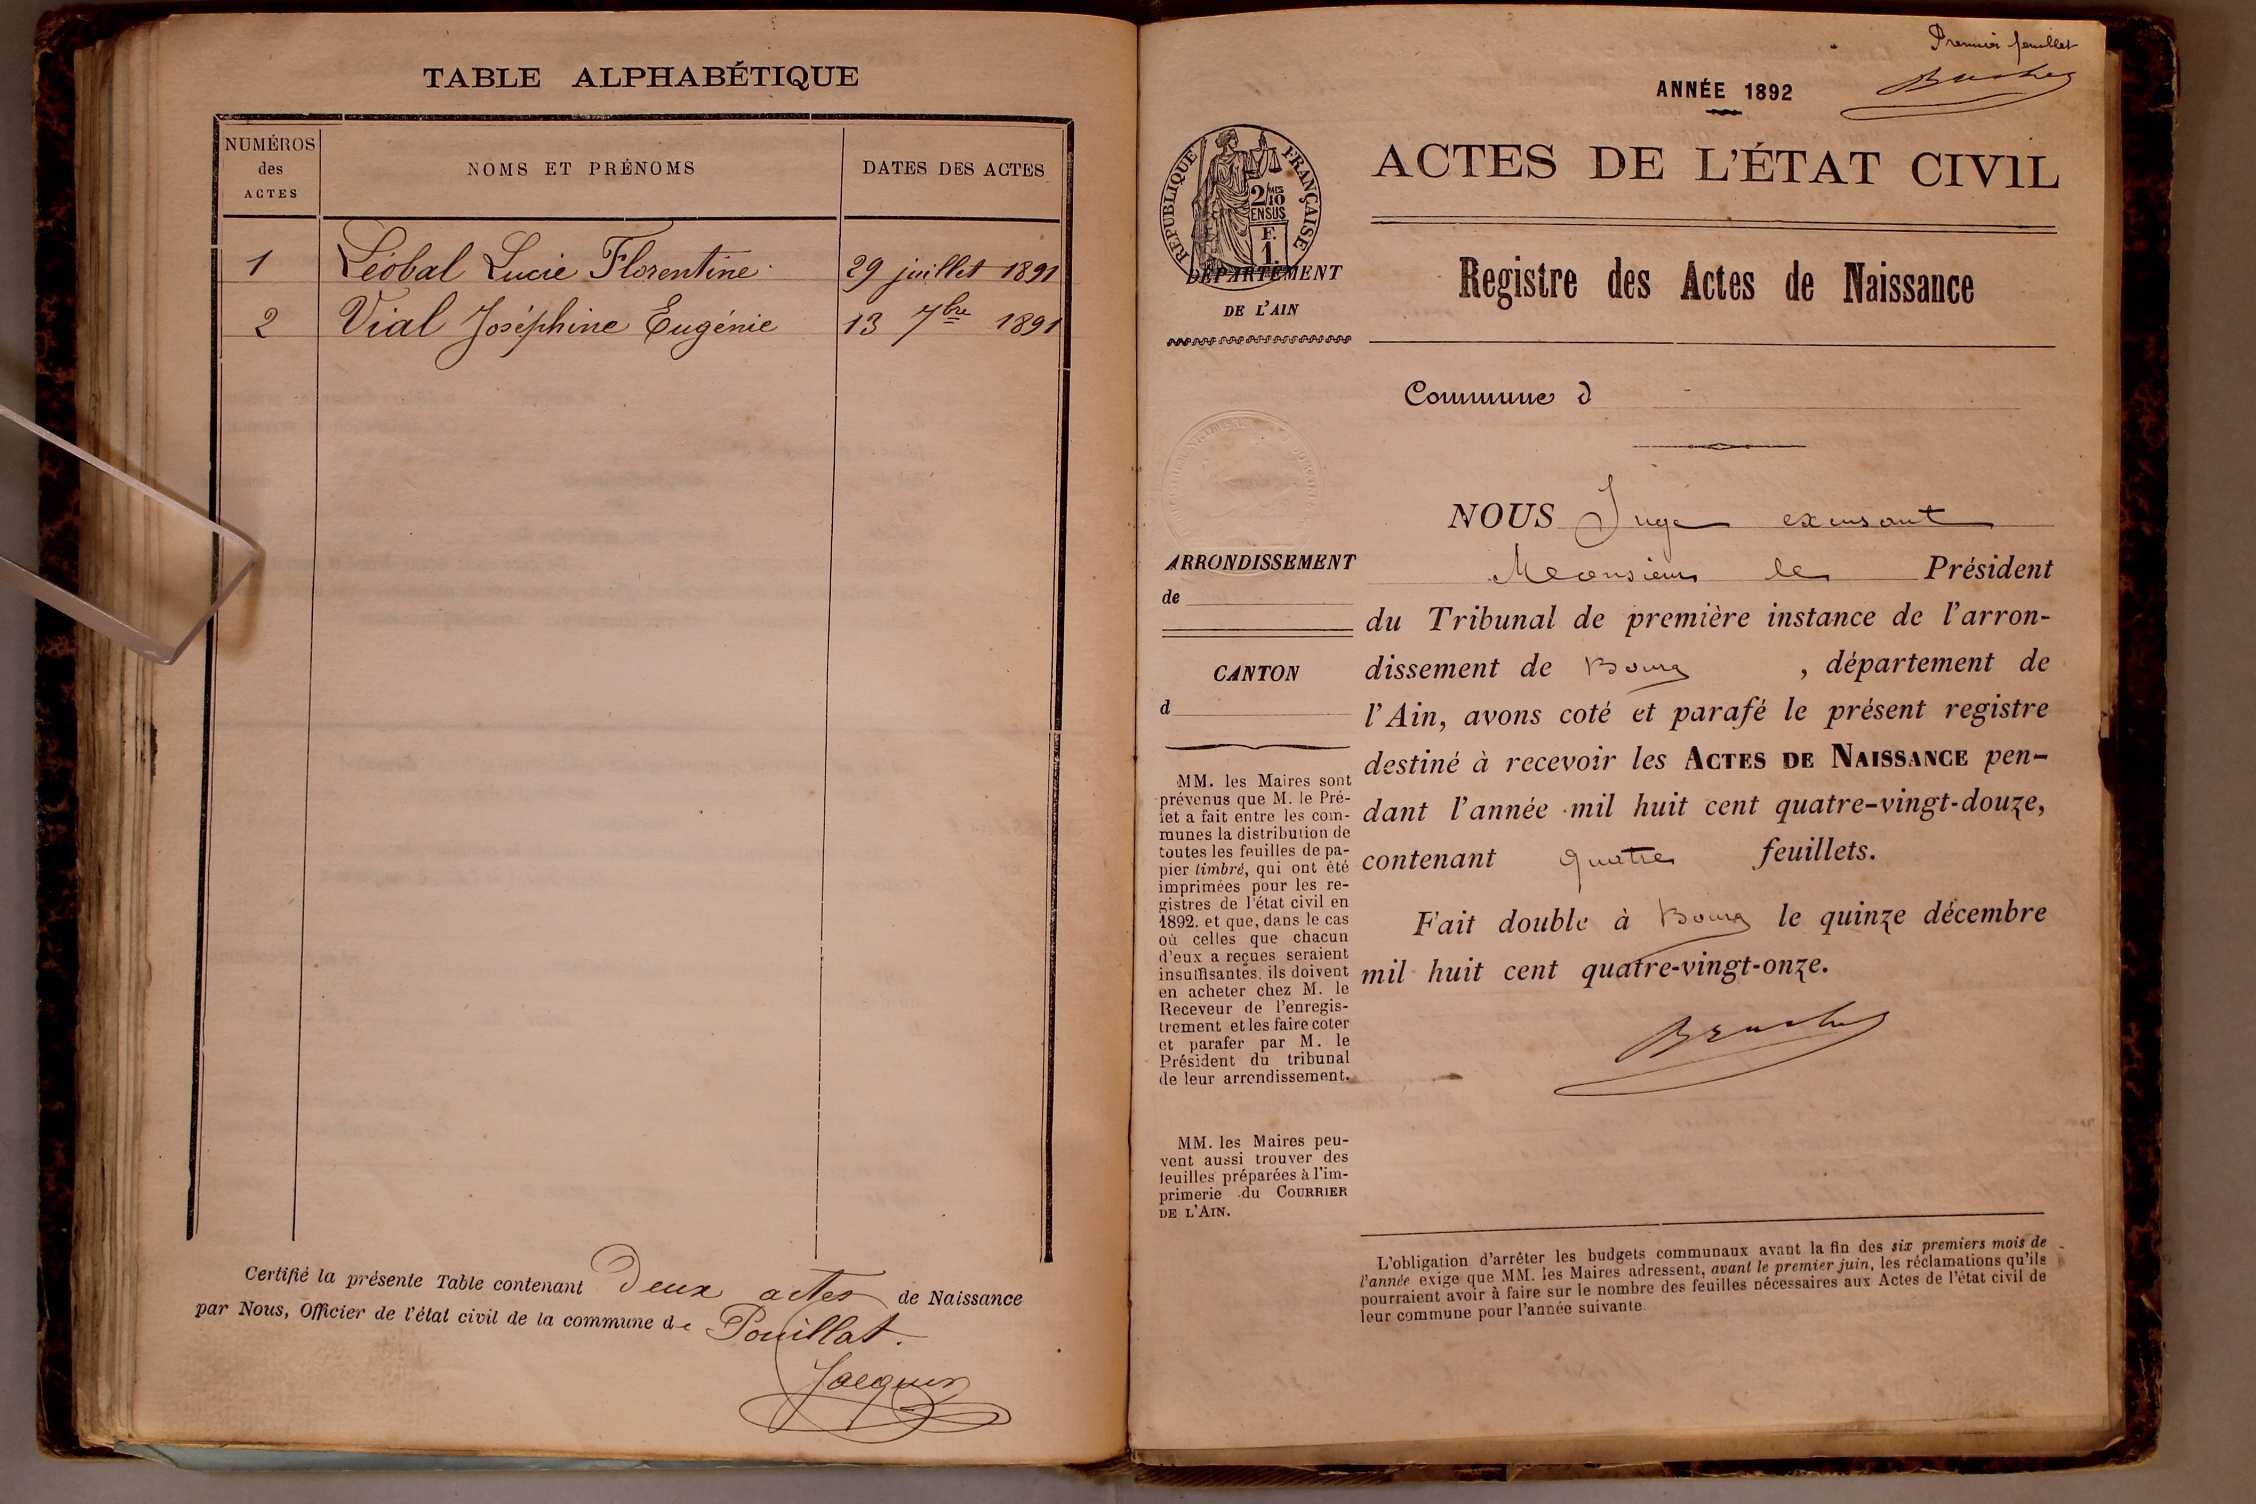 TABLE ALPHABÉTIQUE
NUMÉROS
des
ACTES
NOMS ET PRÉNOMS
DATES DES ACTES
1 Léobal Lucie Florentine 29 juillet 1891
2 Vial Joséphine Eugénie 13 7bre 1891
Certifié la présente Table contenant Deux actes de Naissance
par Nous, Officier de l'état civil de la commune de Pouillat.
Jacquin
Premier feuillet
ANNÉE 1892
RÉPUBLIQUE FRANÇAISE
2/10 MES
EN SUS
F.
1
DÉPARTEMENT
DE L'AIN
ACTES DE L'ÉTAT CIVIL
Registre des Actes de Naissance
Commune d
ARRONDISSEMENT
de
CANTON
d
MM. les Maires sont
prévenus que M. le Pré-
fet a fait entre les com-
munes la distribution de
toutes les feuilles de pa-
pier timbré, qui ont été
imprimées pour les re-
gistres de l'état civil en
1892. et que, dans le cas
où celles que chacun
d'eux a reçues seraient
insuffisantes, ils doivent
en acheter chez M. le
Receveur de l'enregis-
trement et les faire coter
et parafer par M. le
Président du tribunal
de leur arrondissement.
MM. les Maires peu-
vent aussi trouver des
feuilles préparées à l'im-
primerie du COURRIER
DE L'AIN.
NOUS Juge excusant
Monsieur le Président
du Tribunal de première instance de l'arron-
dissement de Bourg , département de
l'Ain, avons coté et parafé le présent registre
destiné à recevoir les ACTES DE NAISSANCE pen-
dant l'année mil huit cent quatre-vingt-douze,
contenant quatre feuillets.
Fait double à Bourg le quinze décembre
mil huit cent quatre-vingt-onze.
L'obligation d'arrêter les budgets communaux avant la fin des six premiers mois de
l'année exige que MM. les Maires adressent, avant le premier juin, les réclamations qu'ils
pourraient avoir à faire sur le nombre des feuilles nécessaires aux Actes de l'état civil de
leur commune pour l'année suivante.